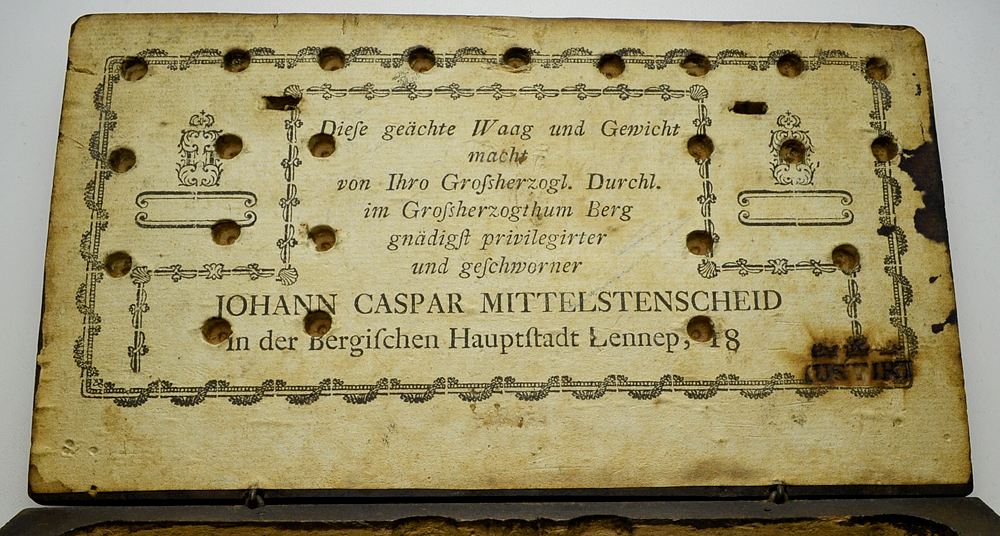 Dieſe geächte Waag und Gewicht
macht
von Ihro Groſsherzogl. Durchl.
im Groſsherzogthum Berg
gnädigſt privilegirter
und geſchworner
JOHANN CASPAR MITTELSTENSCHEID
in der Bergiſchen Hauptſtadt Lennep, 18